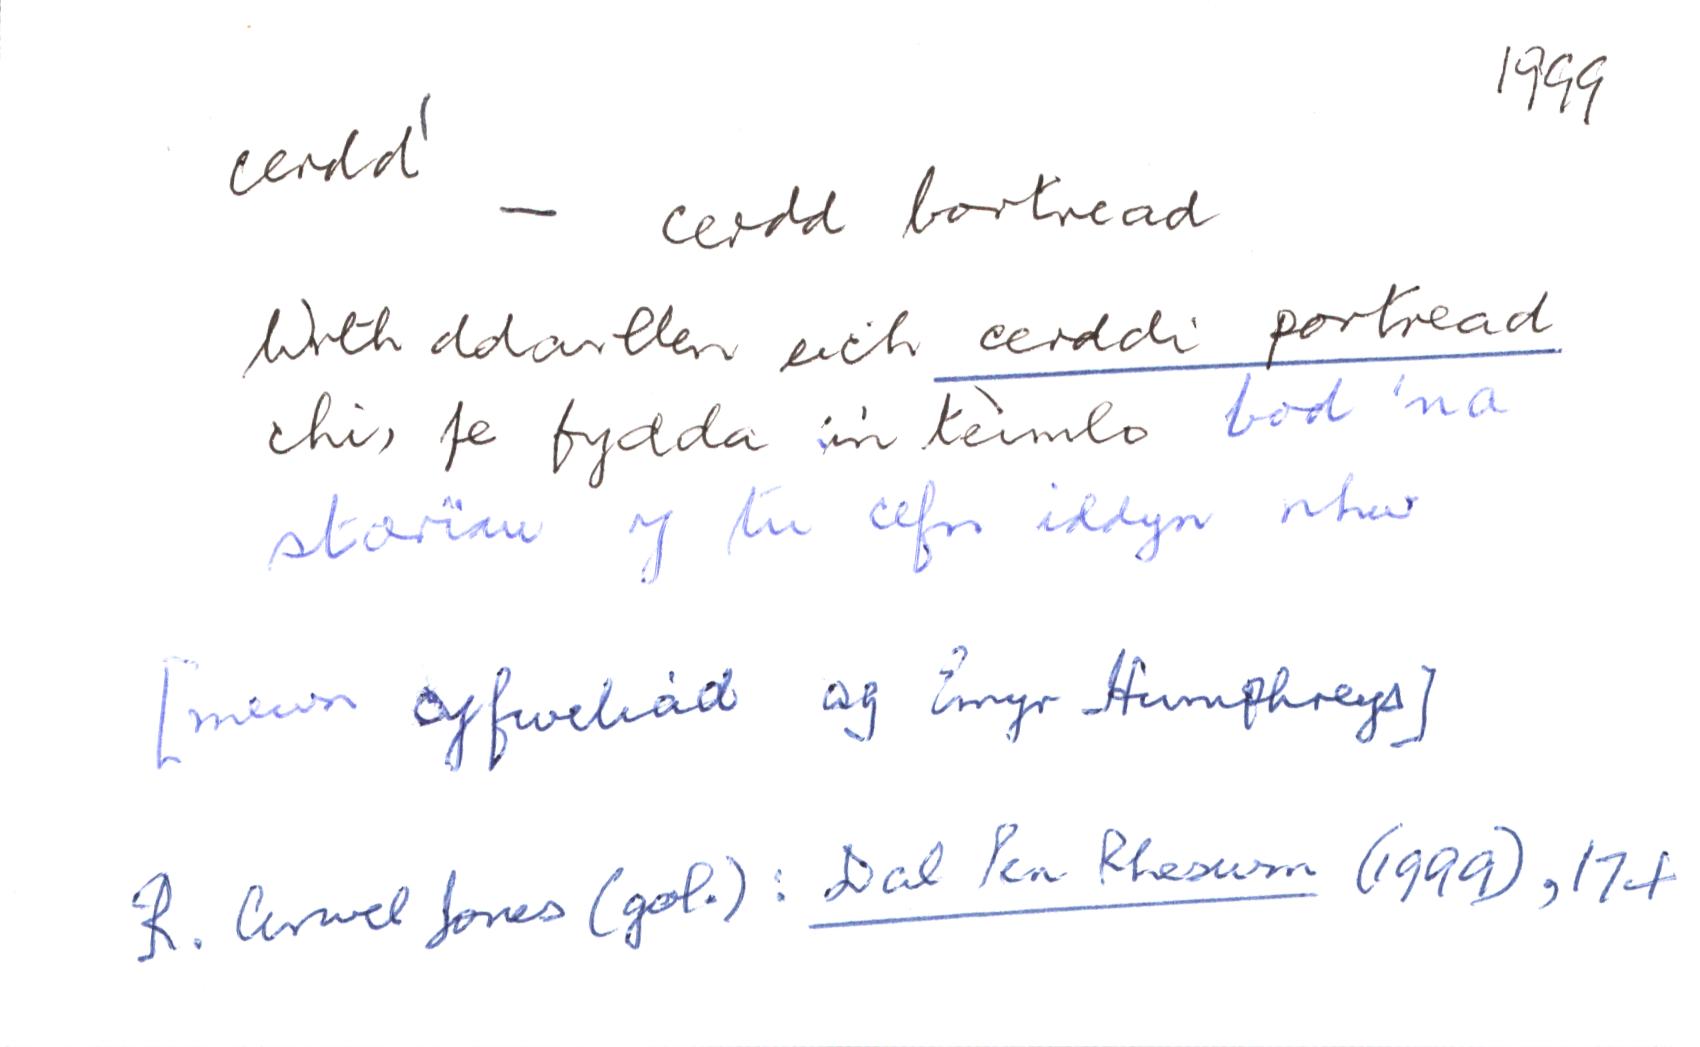 1999
cerdd¹
— cerdd bortread
Wrth ddarllen eich cerddi portread
chi, fe fydda i'n teimlo bod 'na
storïau y tu cefn iddyn nhw
[mewn cyfweliad ag Emyr Humphreys]
R. Arwel Jones (gol.): Dal Pen Rheswm (1999), 174